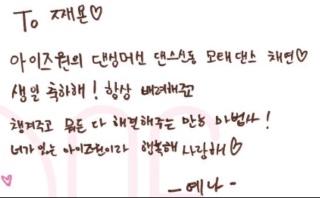 To 쨰욘♡
아이즈원의 댄싱머신 댄스신동 모태댄스 채연♡
생일 축하해! 항상 배려해주고
챙겨주고 뭐든 다 해결해주는 만능 마법사!
너가 있는 아이즈원이라 행복해 사랑해♡
-예나-